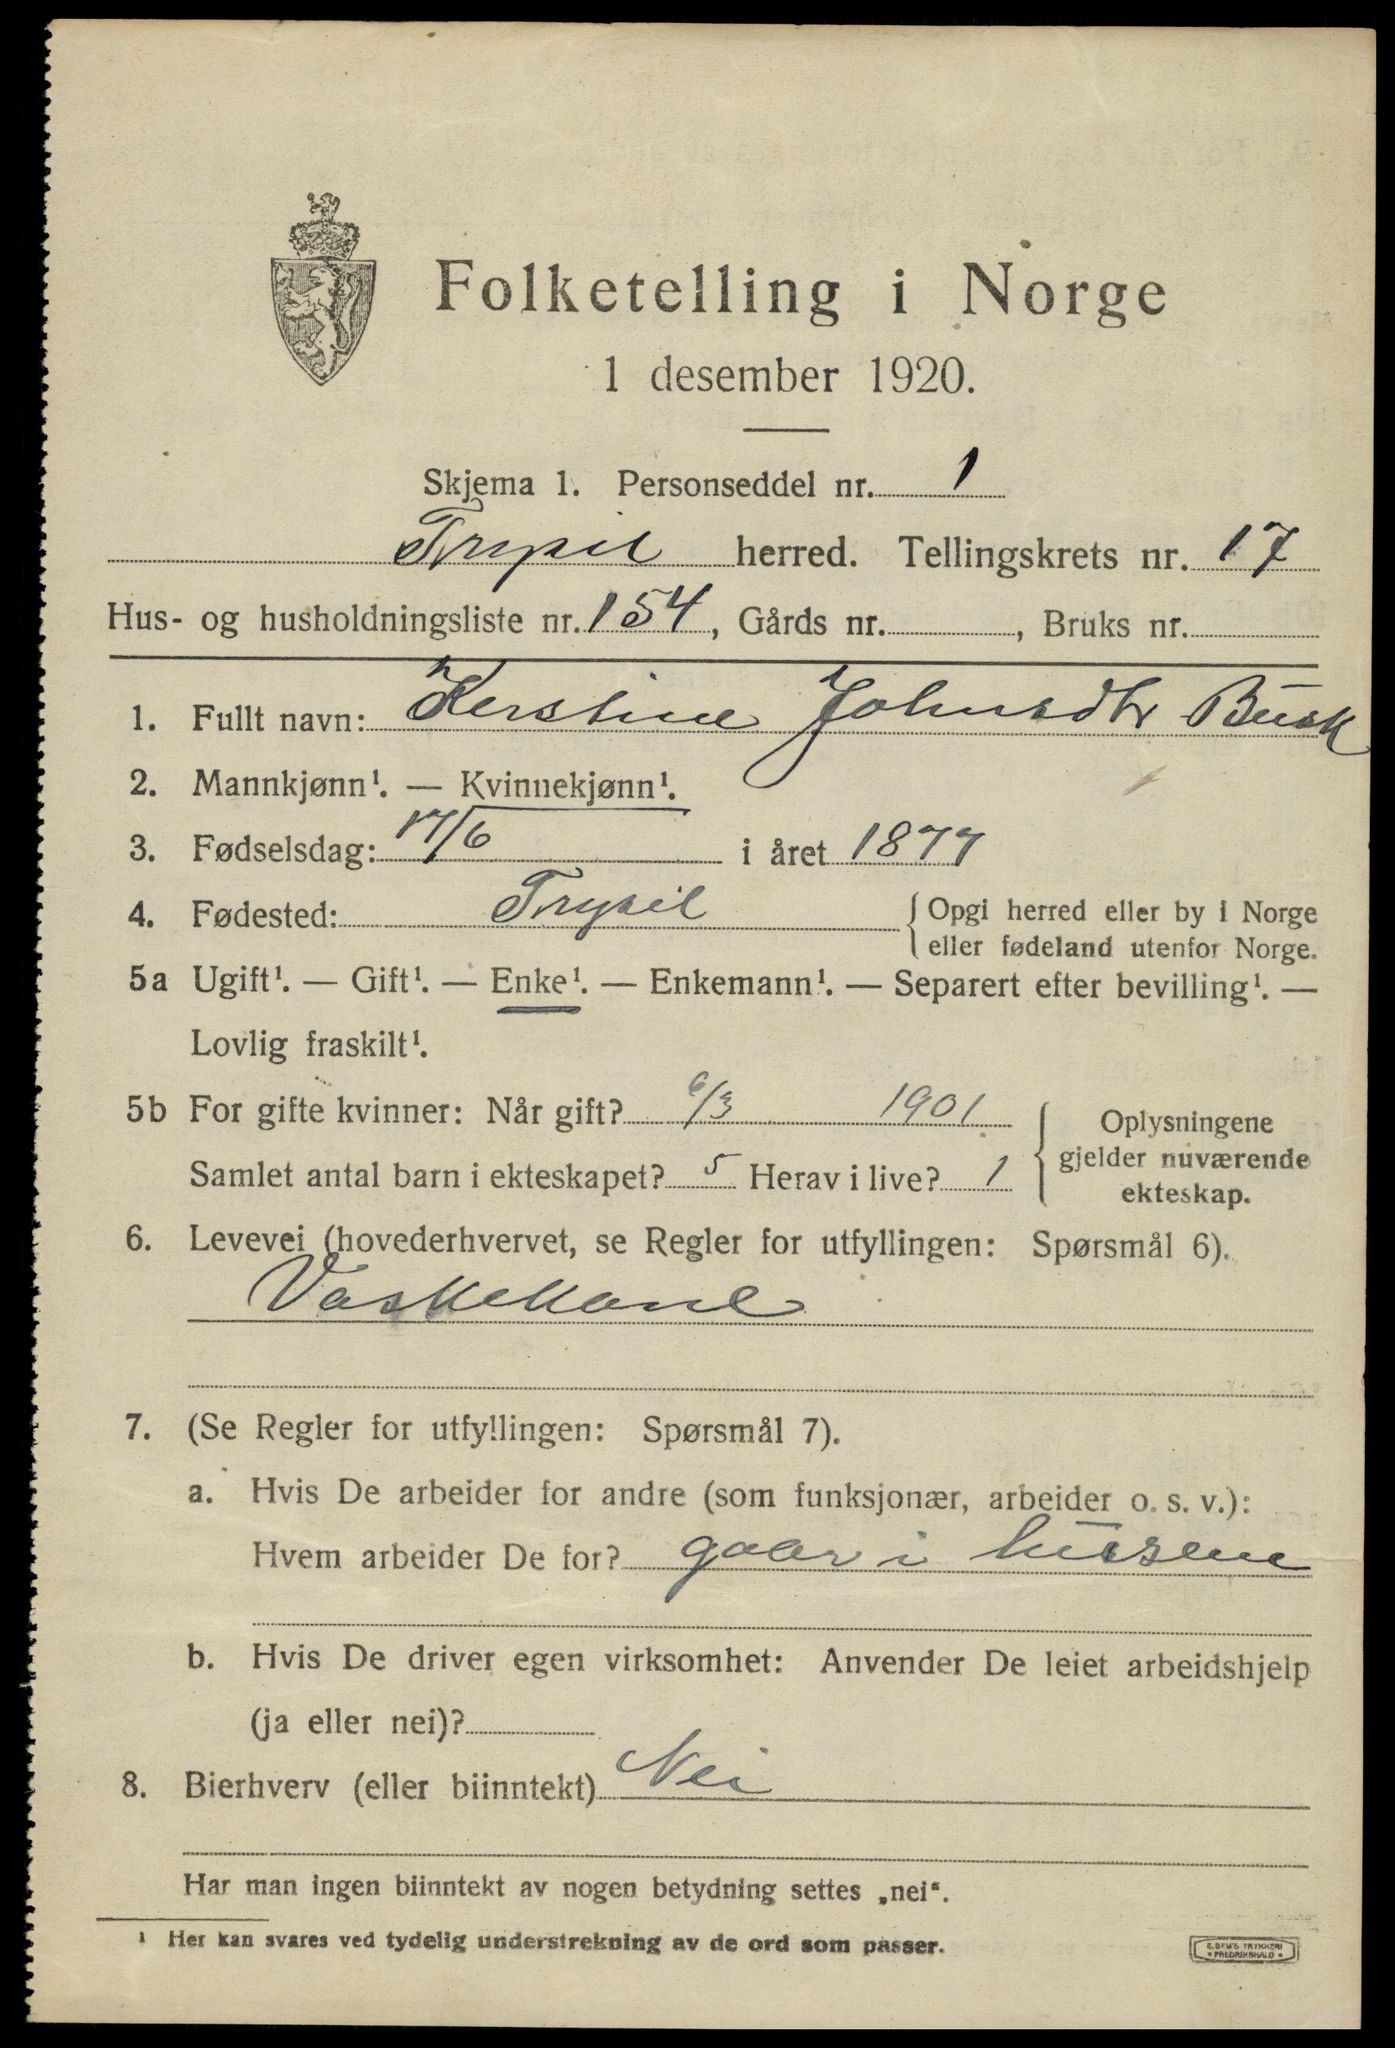 Folketelling i Norge
1 desember 1920.
Skjema 1. Personseddel nr. 1
Trysil herred. Tellingskrets nr. 17
Hus- og husholdningsliste nr. 154, Gårds nr. , Bruks nr.
1. Fullt navn: Kerstine Johnsdtr Busk
2. Mannkjønn¹. — Kvinnekjønn¹.
3. Fødselsdag: 17/6 i året 1877
4. Fødested: Trysil { Opgi herred eller by i Norge
eller fødeland utenfor Norge.
5a Ugift¹. — Gift¹. — Enke¹. — Enkemann¹. — Separert efter bevilling¹. —
Lovlig fraskilt¹.
5b For gifte kvinner: Når gift? 6/3 1901. { Oplysningene
gjelder nuværende
Samlet antal barn i ekteskapet? 5 Herav i live? 1
ekteskap.
6. Levevei (hovederhvervet, se Regler for utfyllingen: Spørsmål 6).
Vaskekone
7. (Se Regler for utfyllingen: Spørsmål 7).
a. Hvis De arbeider for andre (som funksjonær, arbeider o. s. v.):
Hvem arbeider De for? gaar i husene
b. Hvis De driver egen virksomhet: Anvender De leiet arbeidshjelp
(ja eller nei)?
8. Bierhverv (eller biinntekt) Nei
Har man ingen biinntekt av nogen betydning settes „nei“.
¹ Her kan svares ved tydelig understrekning av de ord som passer.
E. SEM'S TRYKKERI
• FREDRIKSHALD •